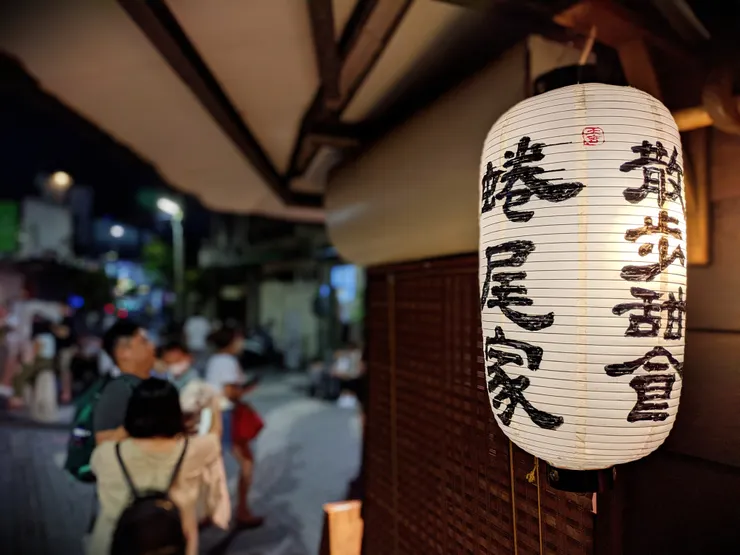 散步甜食
蜷尾家